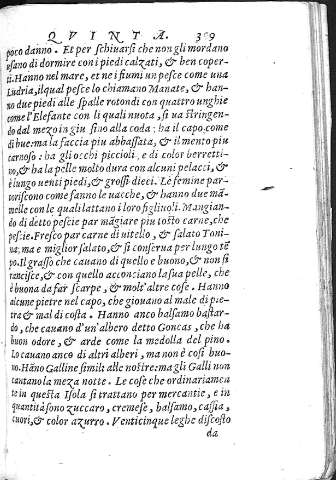 QVINTA. 309
poco danno. Et per schiuarsi che non gli mordano
usano di dormire con i piedi calzati, & ben coper-
ti. Hanno nel mare, et ne i fiumi un pesce come una
Ludria, il qual pesce lo chiamano Manate, & han-
no due piedi alle spalle rotondi con quattro unghie
come l'Elefante con li quali nuota, si ua stringen-
do dal mezo in giu sino alla coda: ha il capo come
di bue: ma la faccia piu abbassata, & il mento piu
carnoso: ha gli occhi piccioli, e di color berretti-
no, & ha la pelle molto dura con alcuni pelacci, &
è lungo uenti piedi, & grosso dieci. Le femine par-
toriscono come fanno le uacche, & hanno due ma-
melle con le quali lattano i loro figliuoli. Mangian-
do di detto pesce par mãgiare piu tosto carne, che
pescie. Fresco par carne di uitello, & salato Toni-
na: ma e miglior salato, & si conserua per lungo tẽ
po. Il grasso che cauano di quello e buono, & non si
rancisce, & con quello acconciano la sua pelle, che
è buona da far scarpe, & molt'altre cose. Hanno
alcune pietre nel capo, che giouano al male di pie-
tra & mal di costa. Hanno anco balsamo bastar-
do, che cauano d'un'albero detto Goncas, che ha
buon odore, & arde come la medolla del pino.
Lo cauano anco di altri alberi, ma non è cosi buo-
no. Hãno Galline simili alle nostre: ma gli Galli non
cantano la meza notte. Le cose che ordinariamen
te in questa Isola si trattano per mercantie, e in
quantità sono zuccaro, cremese, balsamo, cassia,
cuori, & color azurro. Venticinque leghe discosto
da